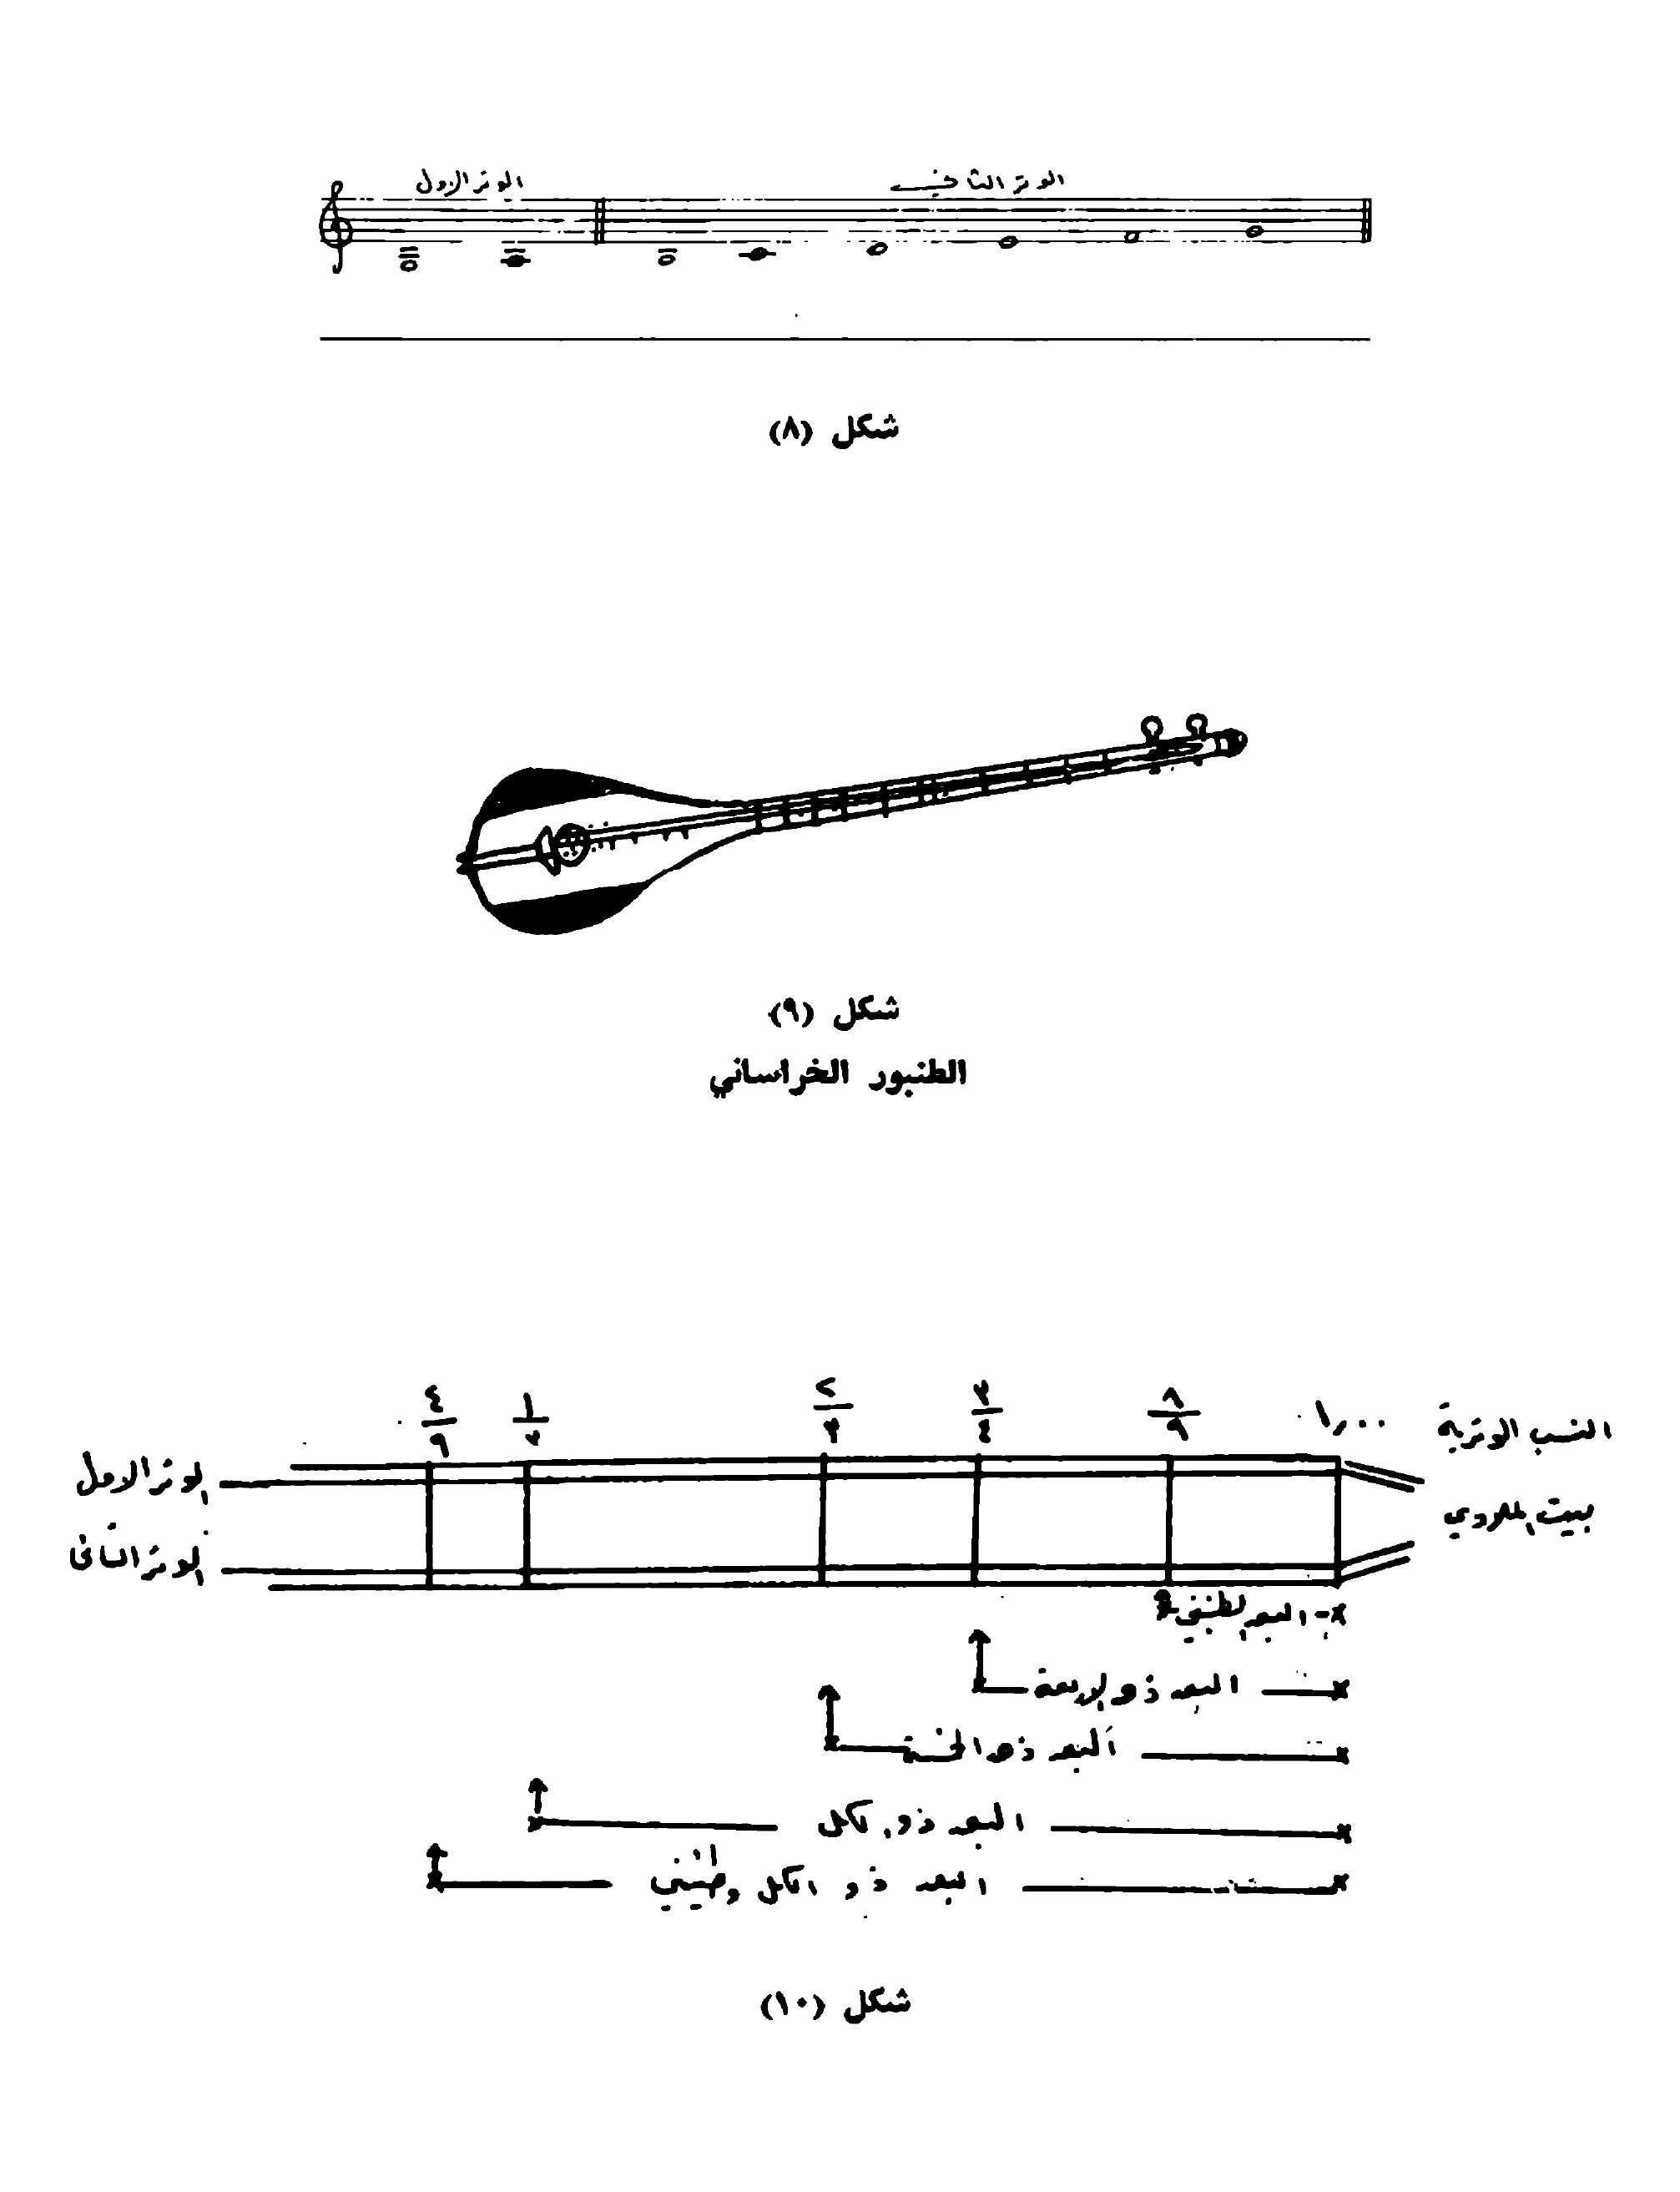 الوتر الاول الوتر الثاني
شكل (٨)
شكل (٩)
الطنبور الخراساني
النسب الوترية ١,٠٠ ٨/٩ ٣/٤ ٢/٣ ١/٢ ٤/٩
الوتر الاول
بيت الملاوي
الوتر الثاني
البعد الطنيني
البعد ذو الاربعة
البعد ذو الخمسة
البعد ذو الكل
البعد ذو الكل وطنيني
شكل (١٠)